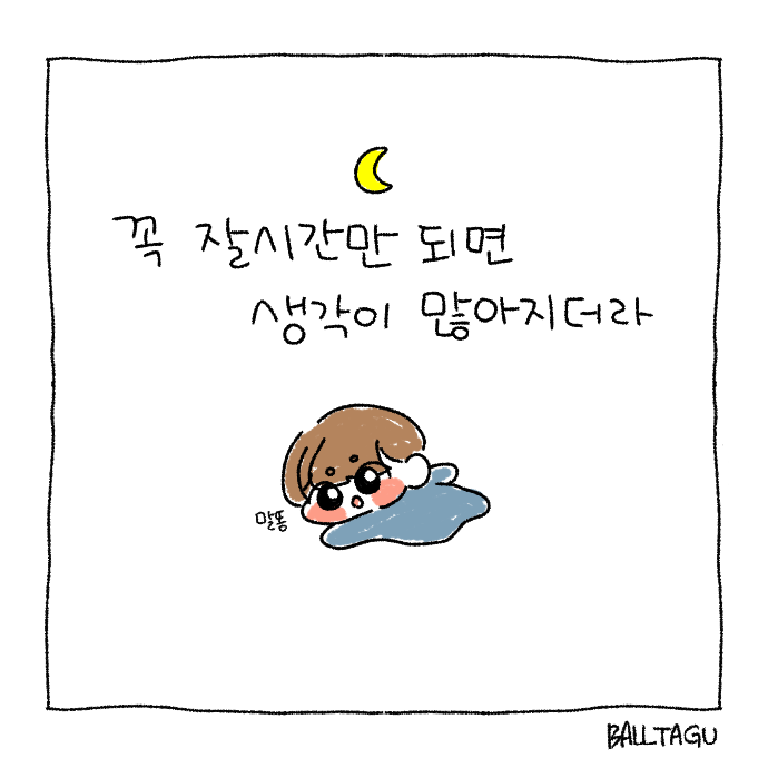 꼭 잘시간만 되면
생각이 많아지더라
말똥
BALLTAGU